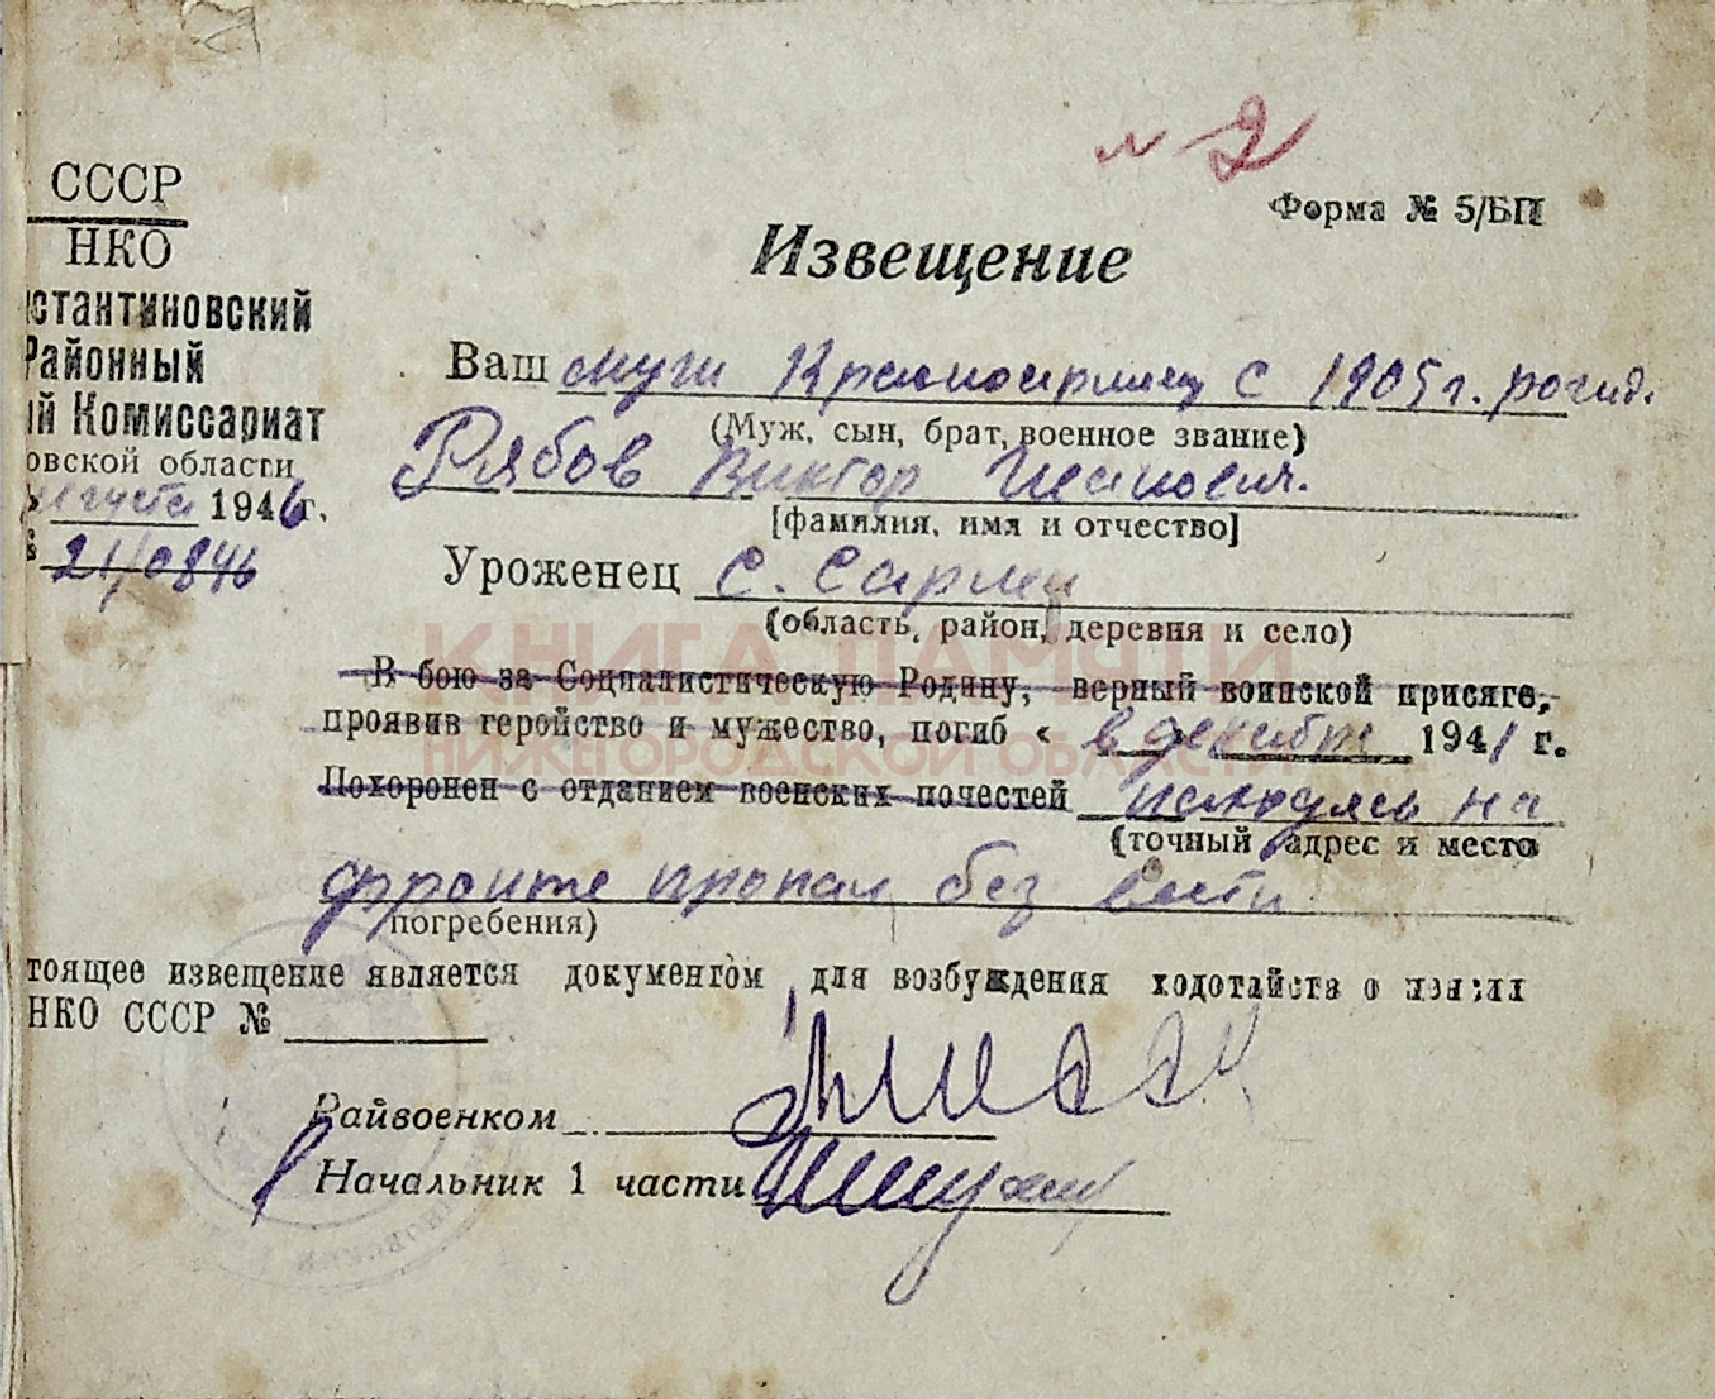 № 2
СССР
Форма № 5/БП
НКО
Извещение
нстантиновский
Районный
ый Комиссариат
овской области
августа 1946 г.
№ 21/0846
Ваш муж Красноармеец с 1905 г. рожд.
(Муж, сын, брат, военное звание)
Рябов Виктор Иванович.
[фамилия, имя и отчество]
Уроженец с. Сарлей
(область, район, деревня и село)
КНИГА ПАМЯТИ
НИЖЕГОРОДСКОЙ ОБЛАСТИ
В бою за Социалистическую Родину, верный воинской присяге,
проявив геройство и мужество, погиб « в декабре 1941 г.
Похоронен с отданием воинских почестей находясь на
(точный адрес и место
фронте пропал без вести
погребения)
тоящее извещение является документом для возбуждения ходотайств о пенсии
НКО СССР №
Райвоенком
Начальник 1 части